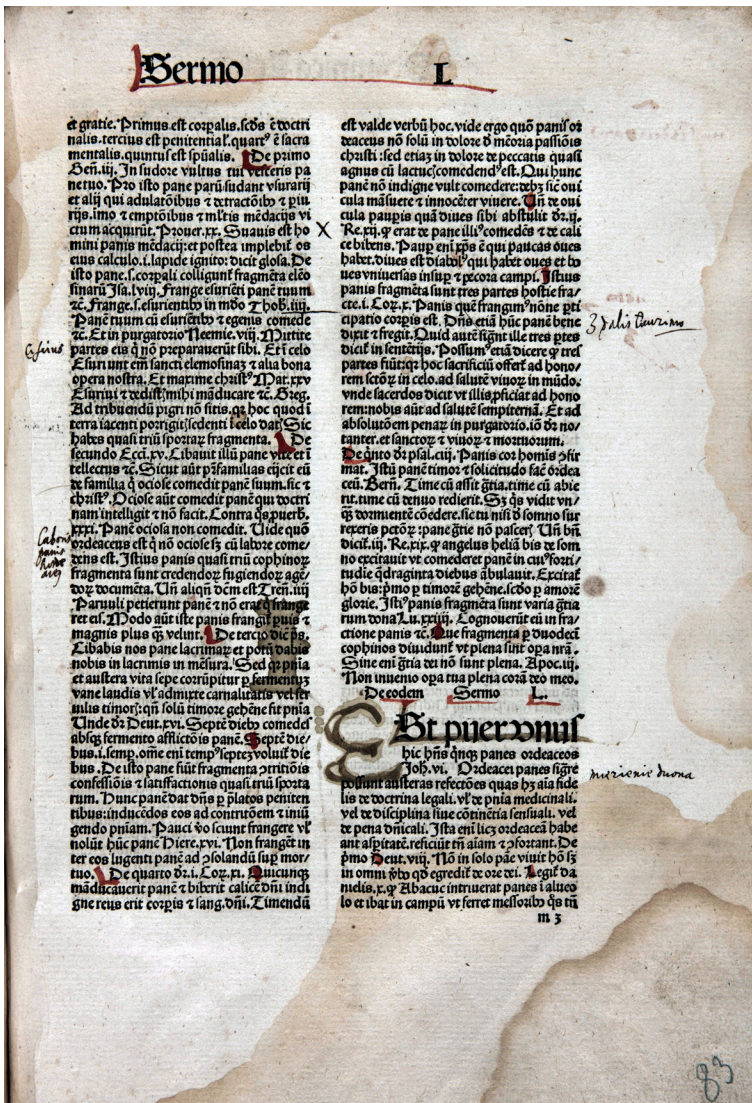 Sermo L
et gratie. Primus est corꝑalis. scd̓s ē doctri
nalis. tercius est penitential̓. quart⁹ ē sacra
mentalis. quintus est sp̄ualis. De primo
Gen̄. iij. In sudore vultus tui vesceris pa
ne tuo. Pro isto pane parū sudant vsurarij
et alij qui adulatōibus ⁊ detractōib⁹ ⁊ ꝑiu
rijs. imo ⁊ emptōibus ⁊ ml̓tis mēdacijs vi
ctum acquirūt. Prouer. xx. Suauis est ho
mini panis mēdacij: et postea implebit̓ os
eius calculo. i. lapide ignito: dicit glosa. De
isto pane. s. corꝑali colligunt̓ fragmēta elēo
sinarū Isa. lviij. Frange esuriēti panē tuum
⁊c. Frange. s. esurientib⁹ in mūdo Thob. iiij.
Panē tuum cū esuriētib⁹ ⁊ egenis comede
⁊c. Et in purgatorio Neemie. viij. Mittite
partes eis q̇ nō preparauerūt sibi. Et ī celo
Esuriunt em̄ sancti elemosinas ⁊ alia bona
opera nostra. Et maxime christ⁹ Mat. xxv
Esuriui ⁊ dedist̓ mihi māducare ⁊c. Greg.
Ad tribuendū pigri nō sitis. qꝛ hoc quod ī
terra iacenti porrigit̓: sedenti ī celo dat̓. Sic
habes quasi triū sportaꝝ fragmenta. De
secundo Ecci. xv. Cibauit illū pane vite et ī
tellectus ⁊c. Sicut aūt pr̄familias eijcit eū
de familia q̇ ociose comedit panē suum. sic ⁊
christ⁹. Ociose aūt comedit panē qui doctri
nam intelligit ⁊ nō facit. Contra q̄s ꝓuerb.
xxxi. Panē ociosa non comedit. Uide quō
ordeaceus est q̇ nō ociose sꝫ cū labore come/
dens est. Istius panis quasi triū cophinoꝝ
fragmenta sunt credendoꝝ fugiendoꝝ agē/
doꝝ documēta. Un̄ aliqn̄ dcm̄ est Tren̄. iiij
Paruuli petierunt panē ⁊ nō erat q̇ frange
ret eis. Modo aūt iste panis frangit̓ ꝑuis ⁊
magnis plus qꝫ velint. De tercio dic̄ ps.
Cibabis nos pane lacrimaꝝ et potū dabis
nobis in lacrimis in mēsura. Sed qꝛ pn̄ia
et austera vita sepe corrūpitur ꝑ fermentuꝫ
vane laudis vl̓ admixte carnalitatis vel ser
uilis timor̓: qn̄ solū timore gehēne fit pn̄ia
Unde dr̄ Deut. xvi. Septē dieb⁹ comedes
absqꝫ fermento afflictōis panē. Septē die/
bus. i. semꝑ. om̄e eni temp⁹ septeꝫ voluit̓ die
bus. De isto pane fiūt fragmenta ꝯtritiōis
confessiōis ⁊ satisfactionis quasi triū sporta
rum. Hunc panē dat dn̄s ꝑ p̄latos peniten
tibus: inducēdos eos ad contritōem ⁊ iniū
gendo pn̄iam. Pauci v̄o sciunt frangere vl̓
nolūt hūc panē Hiere. xvi. Non frangēt in
ter eos lugenti panē ad ꝯsolandū suꝑ mor/
tuo. De quarto dr̄. i. Coꝝ. xi. Quicunqꝫ
māducauerit panē ⁊ biberit calicē dn̄i indi
gne reus erit corꝑis ⁊ sang. dn̄i. Timendū
est valde verbū hoc. vide ergo quō panis or
deaceus nō solū in dolore ⁊ mēoria passiōis
christi: sed etiaꝫ in dolore de peccatis quasi
agnus cū lactuc̓ comedend⁹ est. Qui hunc
panē nō indigne vult comedere: debꝫ sic̄ oui
cula māsuere ⁊ innocēter viuere. Un̄ de oui
cula pauꝑis quā diues sibi abstulit dr̄. ij.
Re. xij. ꝙ erat de pane illi⁹ comedēs ⁊ de cali
ce bibens. Pauꝑ eni xp̄s ē qui paucas oues
habet. diues est diabol⁹ qui habet oues et bo
ues vniuersas insuꝑ ⁊ pecora campi. Istius
panis fragmēta sunt tres partes hostie fra/
cte. i. Coꝝ. x. Panis quē frangim⁹ nōne ꝑti
cipatio corꝑis est. Dn̄s etiā hūc panē bene
dixit ⁊ fregit. Quid autē sign̄t ille tres ꝑtes
dicit̓ in sentētijs. Possum⁹ etiā dicere ꝙ tres
partes fiūt: qꝛ hoc sacrificiū offert̓ ad hono/
rem sctōꝝ in celo. ad salutē viuoꝝ in mūdo.
vnde sacerdos dicit vt illis ꝓficiat ad hono
rem: nobis aūt ad salutē sempiternā. Et ad
absolutōem penaꝝ in purgatorio. iō dr̄ no/
tanter. et sanctoꝝ ⁊ viuoꝝ ⁊ mortuorum.
De q̇nto dr̄ psal. ciij. Panis cor homis ꝯfir
mat. Istū panē timor ⁊ solicitudo fac̄ ordea
ceū. Bern̄. Time cū assit gr̄tia. time cū abie
rit. time cū denuo redierit. Sꝫ q̇s vidit vn/
q̄ꝫ dormientē cōedere. sic̄ tu nisi d̓ somno sur
rexeris pctōꝝ: pane gr̄tie nō pascer̓. Un̄ bn̄
dicit̓. iij. Re. xix. ꝙ angelus heliā bis de som
no excitauit vt comederet panē in cui⁹ forti/
tudie q̇draginta diebus ābulauit. Excitat̓
hō bis: p̓mo ꝑ timorē gehēne. scd̓o ꝑ amorē
glorie. Isti⁹ panis fragmēta sunt varia gr̄tia
rum dona Lu. xxiiij. Cognouerūt eū in fra/
ctione panis ⁊c. Que fragmenta ꝑ duodecī
cophinos diuidunt̓ vt plena sint oꝑa nr̄a.
Sine eni gr̄tia dei nō sunt plena. Apoc. iij.
Non inuenio oꝑa tua plena corā deo meo.
De eodem Sermo L.
Est puer vnus
hic hn̄s q̇nqꝫ panes ordeaceos
Joh. vi. Ordeacei panes sig̅re
possunt austeras refectōes quas hꝫ aīa fide
lis de doctrina legali. vl̓ de pn̄ia medicinali.
vel de disciplina siue cōtinētia sensuali. vel
de pena dn̄icali. Ista eni licꝫ ordeaceā habe
ant asꝑitatē. reficiūt tn̄ aīam ⁊ ꝯfortant. De
p̓mo Deut. viij. Nō in solo pāe viuit hō sꝫ
in omni v̓bo qd̓ egredit̓ de ore dei. Legit̓ da
nielis. x. ꝙ Abacuc intriuerat panes ī alueo
lo et ibat in campū vt ferret messorib⁹ q̇s tū
m 3
X
83